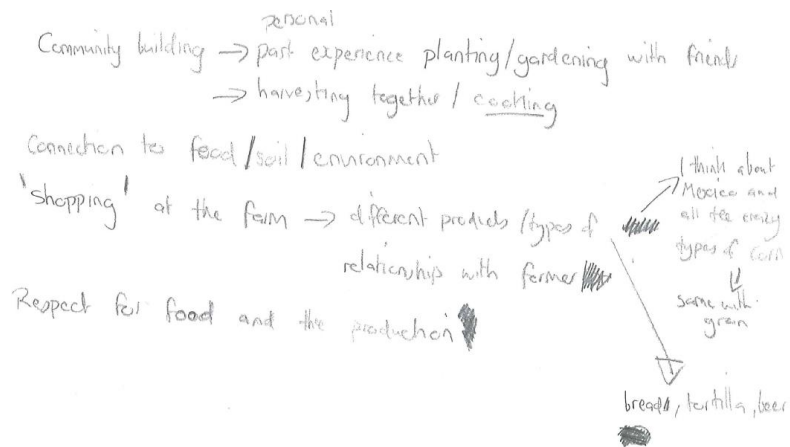 personal
Community building → past experience planting/gardening with friends
→ harvesting together / cooking
Connection to food/soil/environment
'shopping' at the farm → different products/types of
relationship with farmer
Respect for food and the production
I think about
Mexico and
all the crazy
types of corn
same with
grain
breads, tortilla, beer